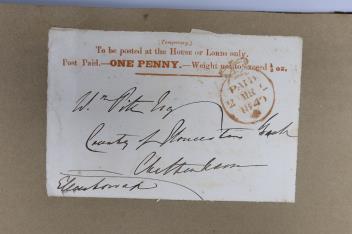 (Temporary.)
To be posted at the House of Lords only.
Post Paid.—ONE PENNY.—Weight not to exceed ½ oz.
PAID
1840
Wm Pitt Esq
County of Gloucester
Cheltenham